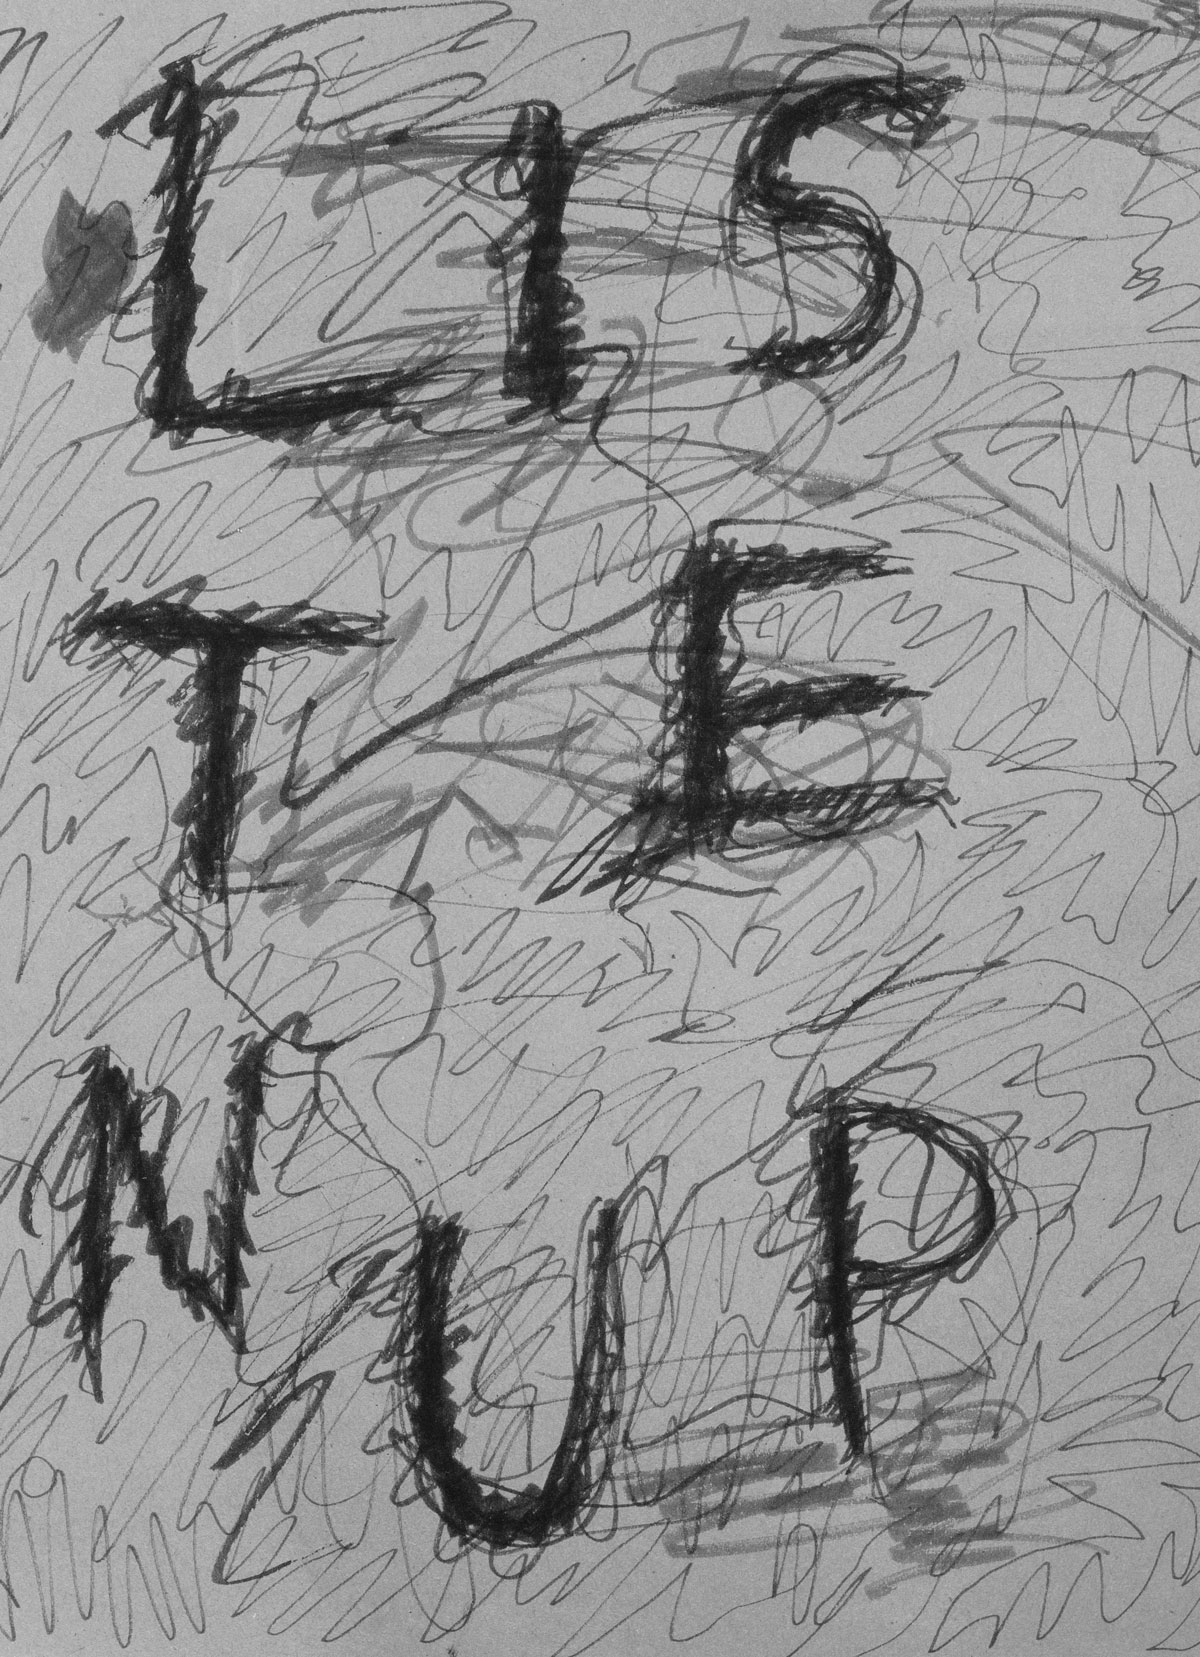 LIS
TE
NUP